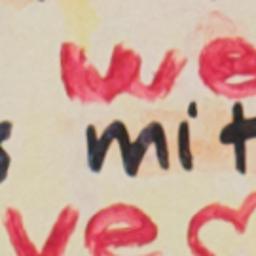 we
s mit
ver